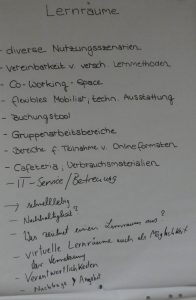 Lernräume
- diverse Nutzungsszenarien
- Vereinbarkeit v. versch. Lernmethoden
- Co-Working-Space
- flexibles Mobiliar, techn. Ausstattung
- Buchungstool
- Gruppenarbeitsbereiche
- Bereiche f. Teilnahme v. Online Formaten
- Cafeteria, Verbrauchsmaterialien
- IT-Service / Betreuung
→ schnelllebig
- Nachhaltigkeit?
- Das zeichnet einen Lernraum aus?
- virtuelle Lernräume auch als Möglichkeit
der Vernetzung
- Verantwortlichkeiten
- Nachfrage & Angebot